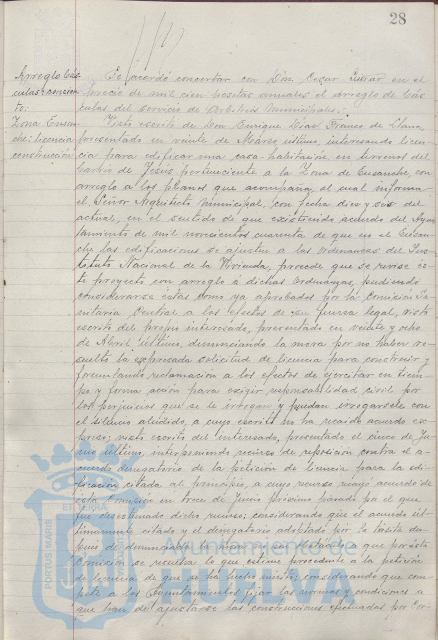 28
Arreglo bás-
culas: concier-
to.
Se acordó concertar con Don Cesar en el
precio de mil cien pesetas anuales el arreglo de bás-
culas del servicio de Arbitrios Municipales.
Zona Ensan-
che: licencia
construcción.
Visto escrito de Don Enrique Diaz Franco de Llano,
presentado en veinte de Marzo último, interesando licen-
cia para edificar una casa-habitación, en terrenos del
barrio de Jesus perteneciente a la Zona de Ensanche, con
arreglo a los planos que acompaña, el cual informa
el Señor Arquitecto Municipal, con fecha diez y seis del
actual, en el sentido de que existiendo acuerdo del Ayun-
tamiento de mil novecientos cuarenta de que en el Ensan-
che las edificaciones se ajusten a las Ordenanzas del Ins-
tituto Nacional de la Vivienda, procede que se revise es-
te proyecto con arreglo a dichas Ordenanzas, pudiendo
considerarse éstas como ya aprobadas por la Comisión Sa-
nitaria Central a los efectos de su fuerza legal, visto
escrito del propio interesado, presentado en veinte y ocho
de Abril último, denunciando la mora por no haber re-
suelto la expresada solicitud de licencia para construir y
formulando reclamación a los efectos de ejercitar en tiem-
po y forma acción para exigir responsabilidad civil por
los perjuicios que se le irrogan y puedan irrogársele con
el silencio aludido, a cuyo escrito no ha recaido acuerdo ex-
preso; visto escrito del interesado, presentado el cinco de Ju-
nio último, interponiendo recurso de reposición contra el a-
cuerdo denegatorio de la petición de licencia para la edi-
ficación citada al principio, a cuyo recurso recayó acuerdo de
esta Comisión en trece de Junio próximo pasado por el que
fue desestimado dicho recurso; considerando que el acuerdo úl-
timamente citado y el denegatorio adoptado por la tácita des-
pués de denunciada la mora, que por ésta
Comisión se resuelva lo que estime procedente a la petición
de licencia de que se ha hecho mérito; considerando que com-
pete a los Ayuntamientos fijar las normas y condiciones a
que han de ajustarse las construcciones efectuadas por
PORTUS MARIS
ET TERRAE
Ayuntamiento de
HUELVA